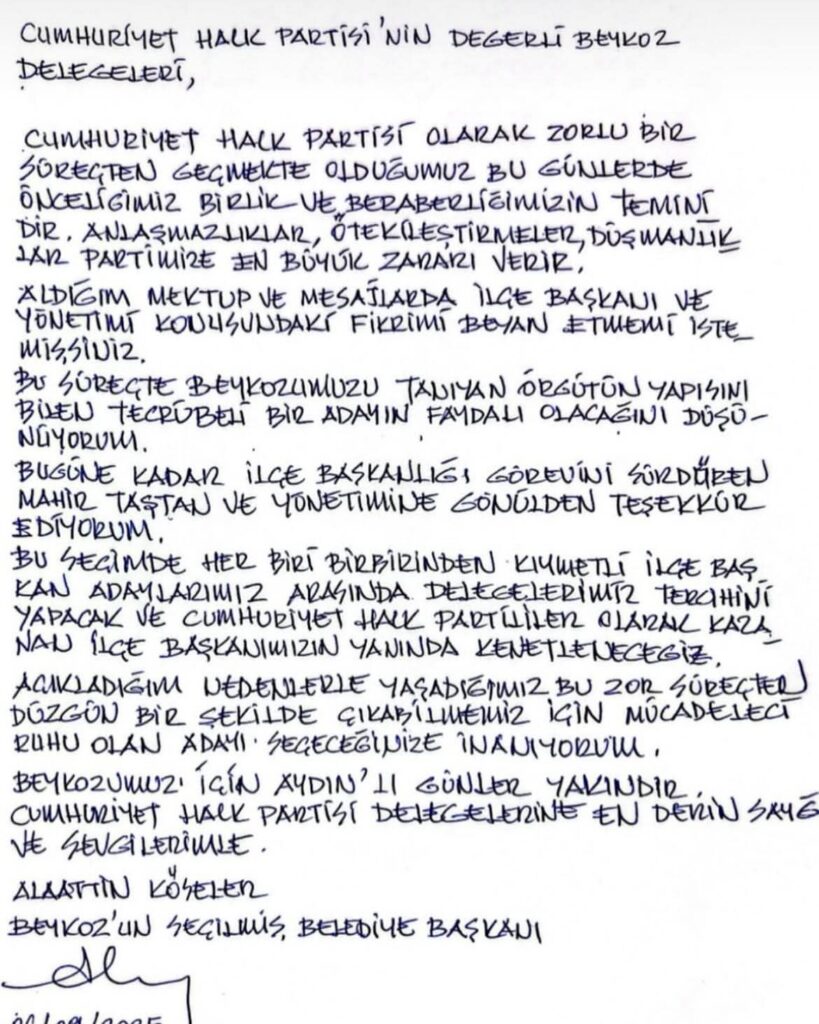 CUMHURİYET HALK PARTİSİ'NİN DEĞERLİ BEYKOZ
DELEGELERİ,
CUMHURİYET HALK PARTİSİ OLARAK ZORLU BİR
SÜREÇTEN GEÇMEKTE OLDUĞUMUZ BU GÜNLERDE
ÖNCELİĞİMİZ BİRLİK VE BERABERLİĞİMİZİN TEMİNİ
DİR. ANLAŞMAZLIKLAR, ÖTEKİLEŞTİRMELER, DÜŞMANLIK
LAR PARTİMİZE EN BÜYÜK ZARARI VERİR.
ALDIĞIM MEKTUP VE MESAJLARDA İLÇE BAŞKANI VE
YÖNETİMİ KONUSUNDAKİ FİKRİMİ BEYAN ETMEMİ İSTE_
MİŞSİNİZ.
BU SÜREÇTE BEYKOZUMUZU TANIYAN ÖRGÜTÜN YAPISINI
BİLEN TECRÜBELİ BİR ADAYIN FAYDALI OLACAĞINI DÜŞÜ-
NÜYORUM.
BUGÜNE KADAR İLÇE BAŞKANLIĞI GÖREVİNİ SÜRDÜREN
MAHİR TAŞTAN VE YÖNETİMİNE GÖNÜLDEN TEŞEKKÜR
EDİYORUM.
BU SEÇİMDE HER BİRİ BİRBİRİNDEN KIYMETLİ İLÇE BAŞ_
KAN ADAYLARIMIZ ARASINDA DELEGELERİMİZ TERCİHİNİ
YAPACAK VE CUMHURİYET HALK PARTİLİLER OLARAK KAZA_
NAN İLÇE BAŞKANIMIZIN YANINDA KENETLENECEĞİZ.
AÇIKLADIĞIM NEDENLERLE YAŞADIĞIMIZ BU ZOR SÜREÇTEN
DÜZGÜN BİR ŞEKİLDE ÇIKABİLMEMİZ İÇİN MÜCADELECİ
RUHU OLAN ADAYI SEÇECEĞİNİZE İNANIYORUM.
BEYKOZUMUZ İÇİN AYDIN'LI GÜNLER YAKINDIR.
CUMHURİYET HALK PARTİSİ DELEGELERİNE EN DERİN SAYG
VE SEVGİLERİMLE.
ALAATTİN KÖSELER
BEYKOZ'UN SEÇİLMİŞ BELEDİYE BAŞKANI